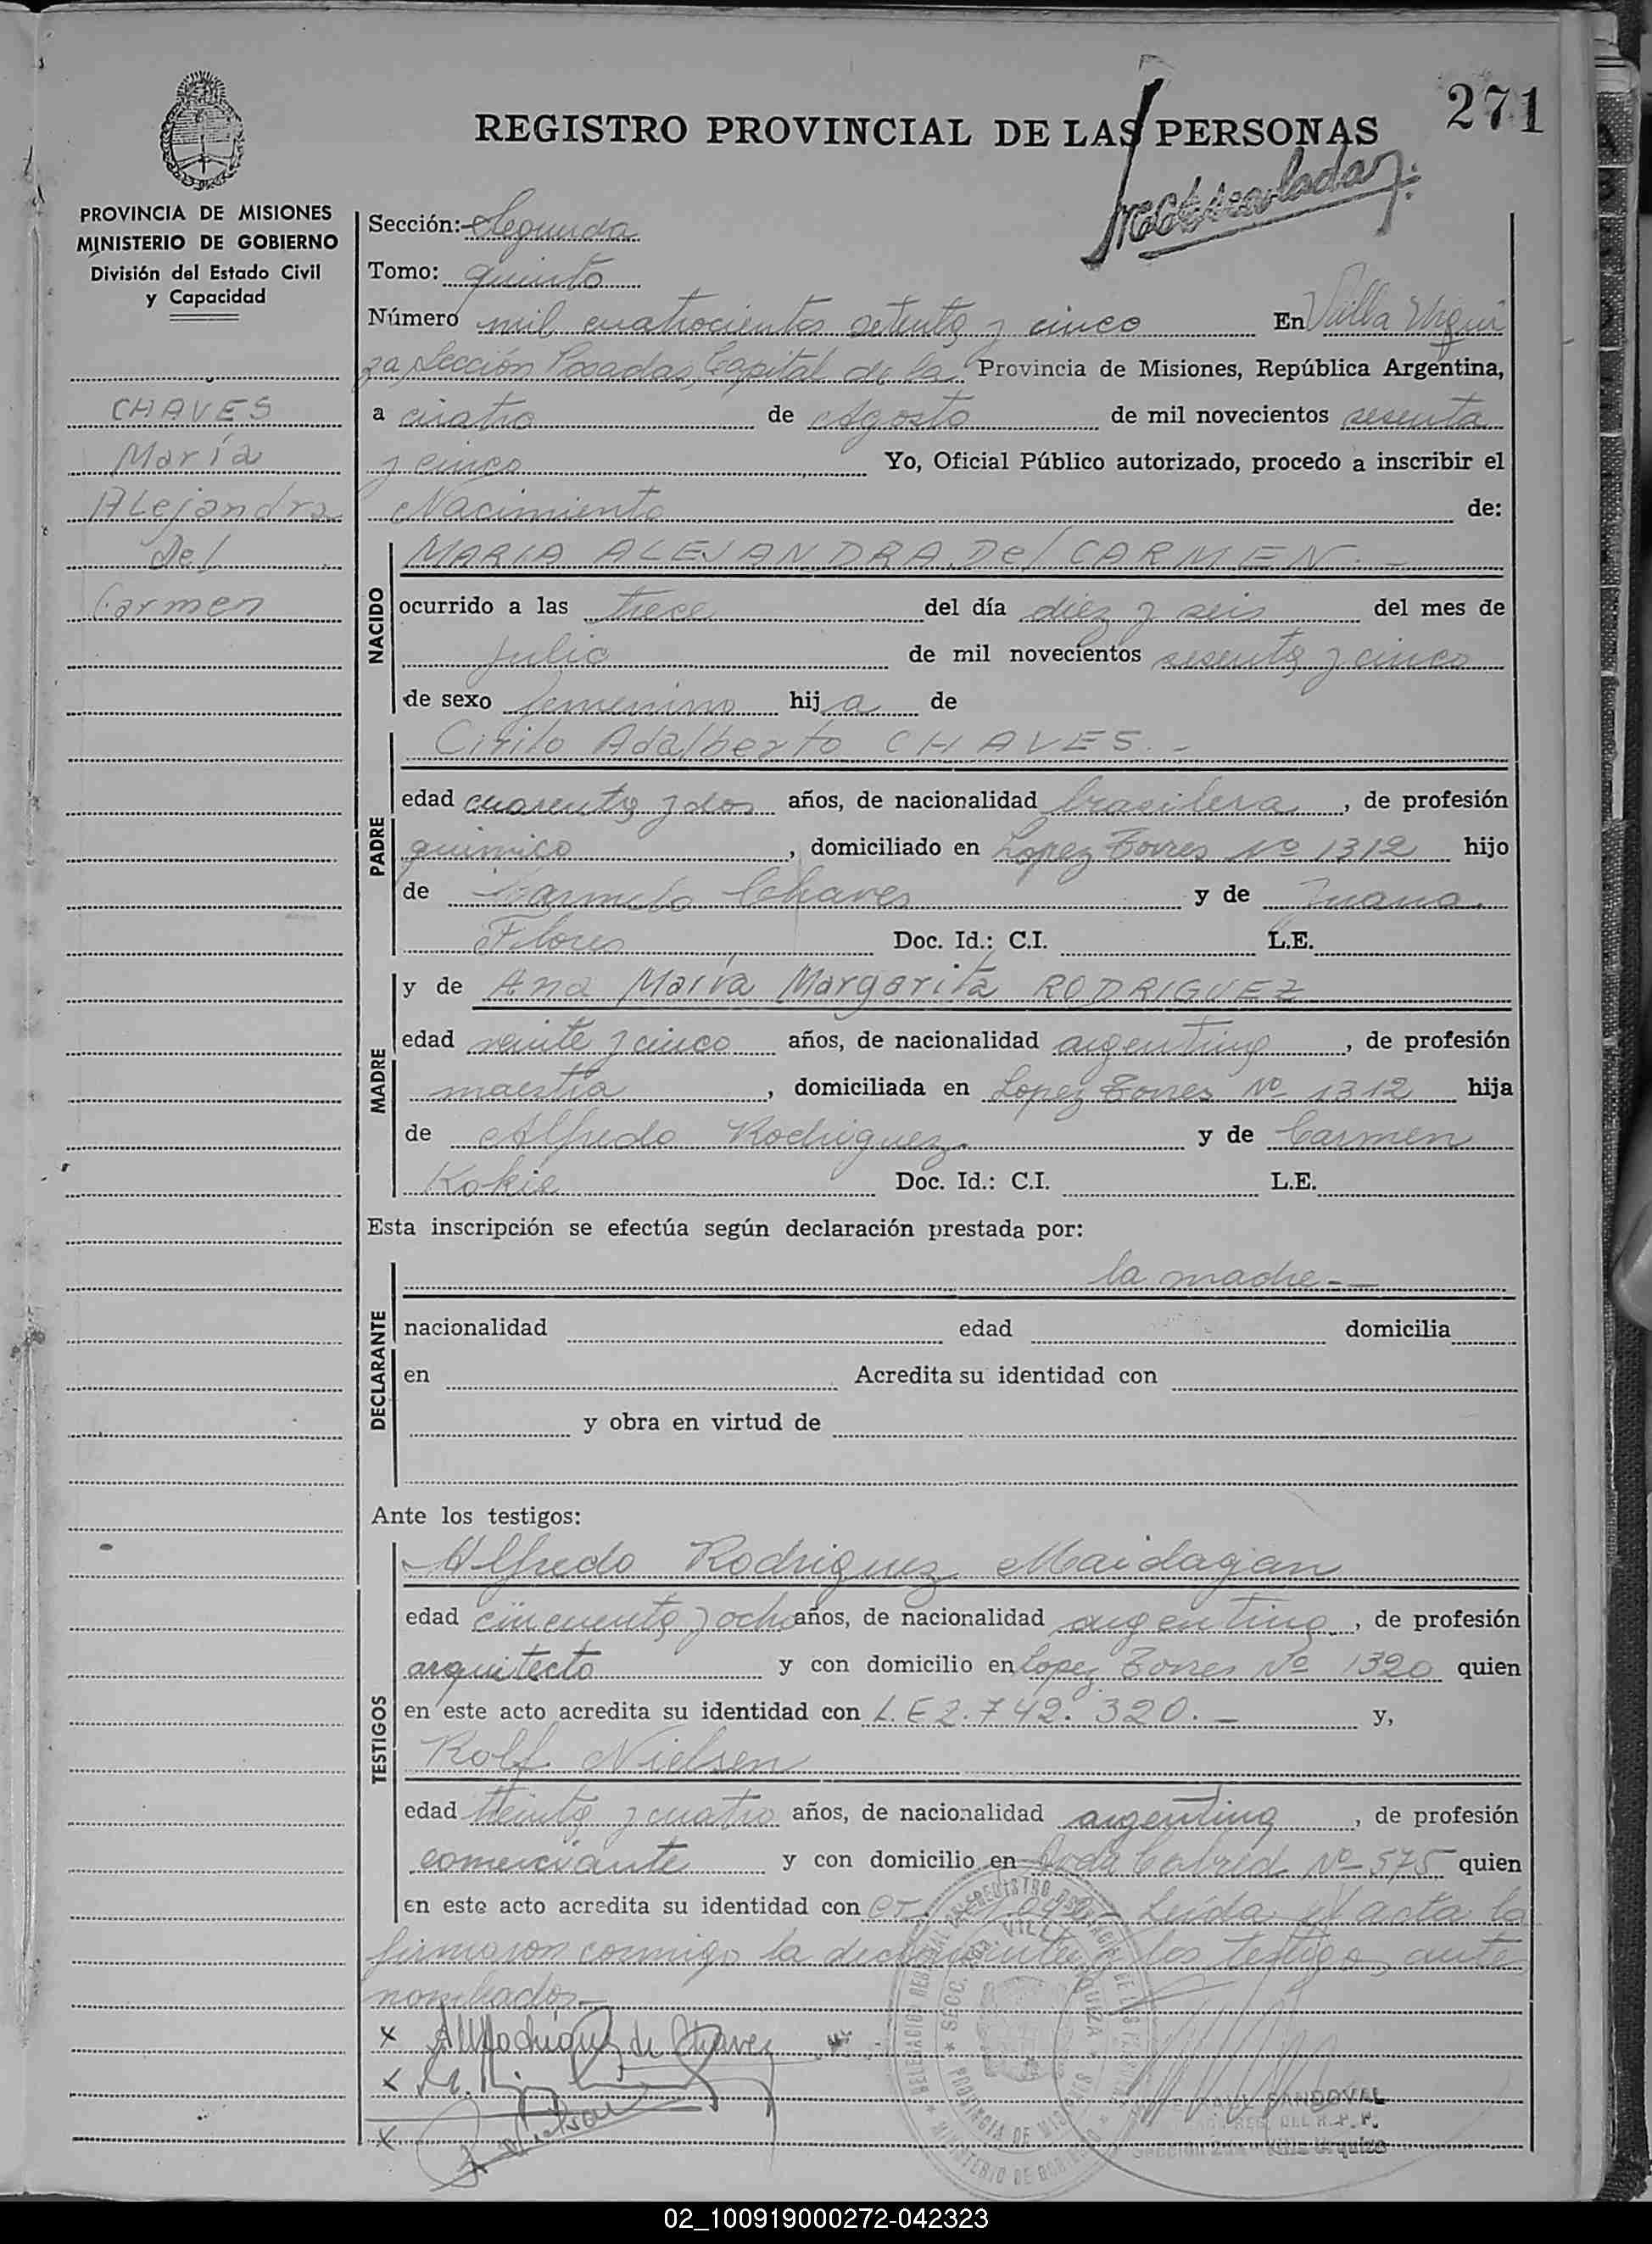 271
REGISTRO PROVINCIAL DE LAS PERSONAS
PROVINCIA DE MISIONES
MINISTERIO DE GOBIERNO
División del Estado Civil
y Capacidad
CHAVES
María
Alejandra
Del
Carmen
Sección: Segunda
Tomo: quinto
Número mil cuatrocientos setenta y cinco En Villa Urqui
za, Sección Posadas, Capital de la Provincia de Misiones, República Argentina,
a cuatro de Agosto de mil novecientos sesenta
y cinco Yo, Oficial Público autorizado, procedo a inscribir el
Nacimiento de:
NACIDO
MARIA ALEJANDRA Del CARMEN.-
ocurrido a las trece del día diez y seis del mes de
Julio de mil novecientos sesenta y cinco
de sexo femenino hija de
PADRE
Cirilo Adalberto CHAVES.-
edad cuarenta y dos años, de nacionalidad brasilera, de profesión
químico, domiciliado en Lopez Torres Nº 1312 hijo
de Chaves y de Juana
Flores Doc. Id.: C.I. L.E.
MADRE
y de Ana María Margarita RODRIGUEZ
edad veinte y cinco años, de nacionalidad argentina, de profesión
maestra, domiciliada en Lopez Torres Nº 1312 hija
de Alfredo Rodriguez y de Carmen
Kokie Doc. Id.: C.I. L.E.
Esta inscripción se efectúa según declaración prestada por:
DECLARANTE
la madre.-
nacionalidad edad domicilia
en Acredita su identidad con
y obra en virtud de
Ante los testigos:
TESTIGOS
Alfredo Rodriguez Maidagan
edad cincuenta y ocho años, de nacionalidad argentina, de profesión
arquitecto y con domicilio en Lopez Torres Nº 1320 quien
en este acto acredita su identidad con L.E 2.742.320.- y,
Rolf Nielsen
edad treinta y cuatro años, de nacionalidad argentina, de profesión
comerciante y con domicilio en Nº 575 quien
en este acto acredita su identidad con Leída el acta la
firmaron conmigo la declarante y los testigos ante
nombrados.-
SANDOVAL
DEL R.P.P.
Villa Urquiza
02_100919000272-042323